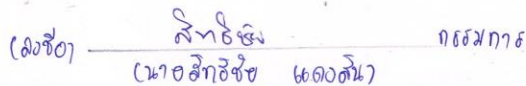 (ลงชื่อ) สิทธิชัย กรรมการ
(นายสิทธิชัย แดงสีนา)